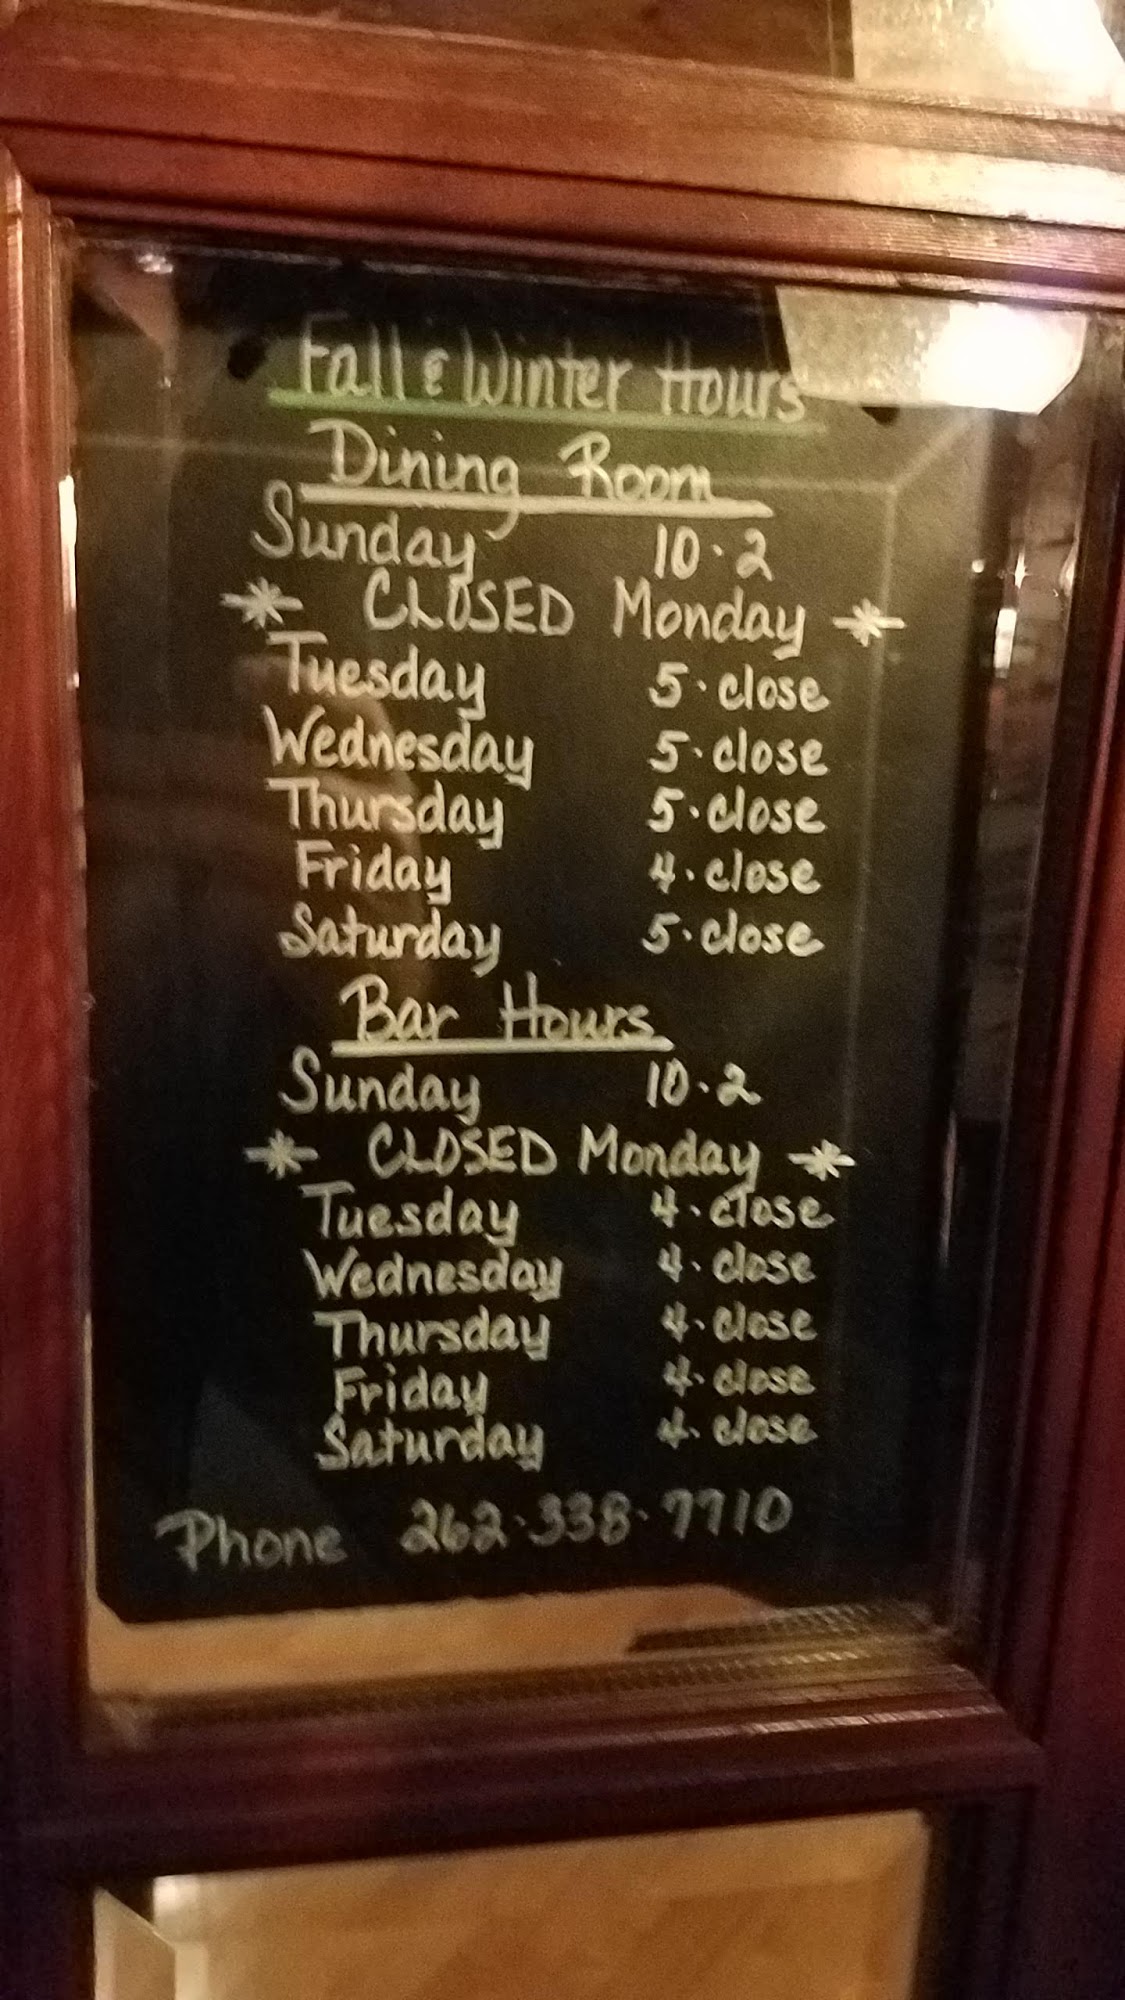 Fall & Winter Hours
Dining Room
Sunday 10·2
* CLOSED Monday *
Tuesday 5·close
Wednesday 5·close
Thursday 5·close
Friday 4·close
Saturday 5·close
Bar Hours
Sunday 10·2
* CLOSED Monday *
Tuesday 4·close
Wednesday 4·close
Thursday 4·close
Friday 4·close
Saturday 4·close
Phone 262·338·7710